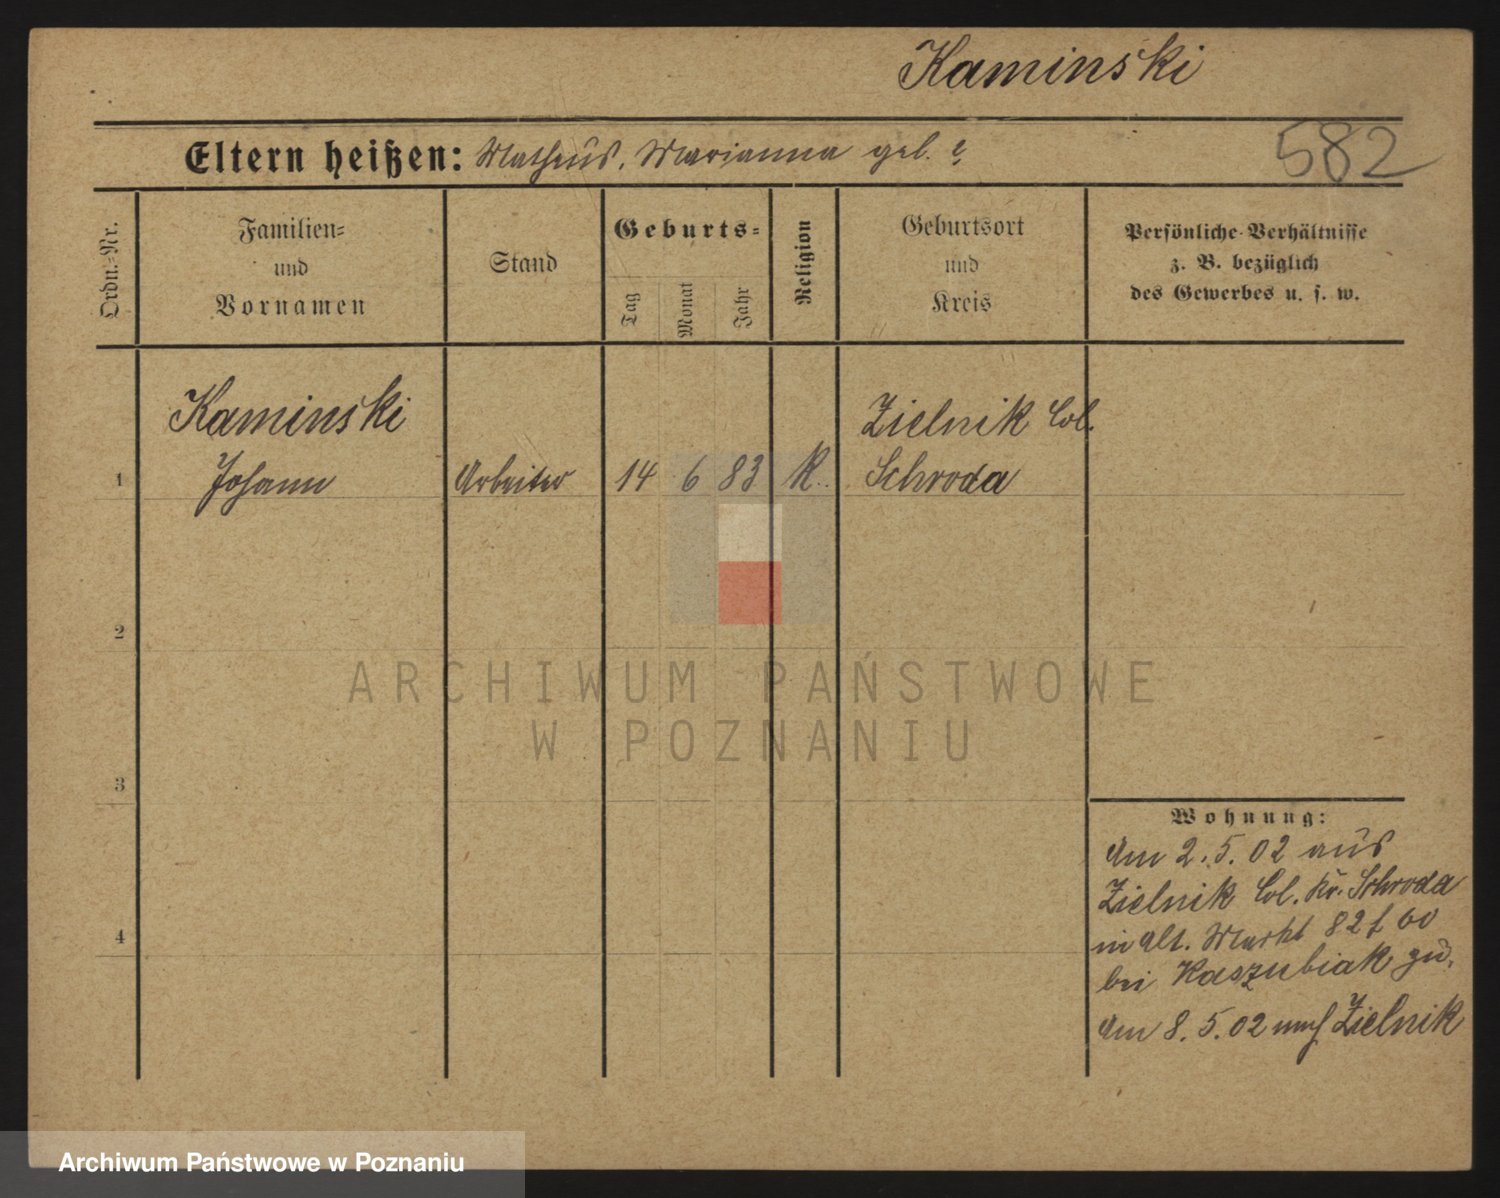 Kaminski
582
Eltern heißen: Matheus, Marianna geb. ?
Ordn.=Nr.
Familien=
und
Vornamen
Stand
Geburts=
Tag
Monat
Jahr
Religion
Geburtsort
und
Kreis
Persönliche Verhältnisse
z. B. bezüglich
des Gewerbes u. s. w.
Kaminski
Zielnik Col.
1 Johann Arbeiter 14 6 83 K. Schroda
2
3
4
Wohnung:
Am 2.5.02 aus
Zielnik Col. Kr. Schroda
in Alt. Markt 82
bei Kaszubiak zu.
Am 8.5.02 nach Zielnik
ARCHIWUM PAŃSTWOWE
W POZNANIU
Archiwum Państwowe w Poznaniu